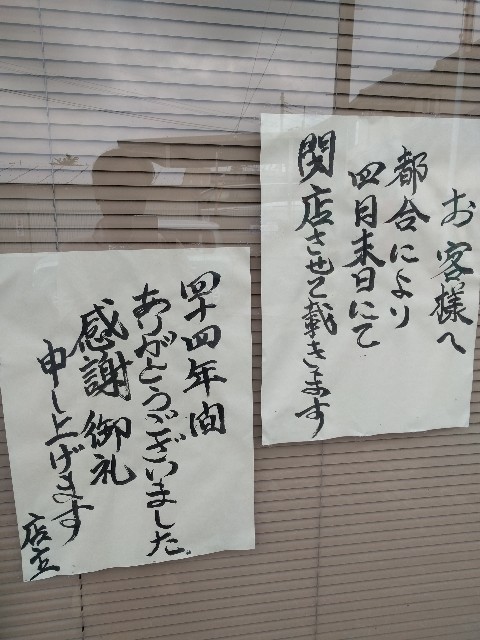 お客様へ
都合により
四月末日にて
閉店させて載きます
四十四年間
ありがとうございました
感謝御礼
申し上げます
店主